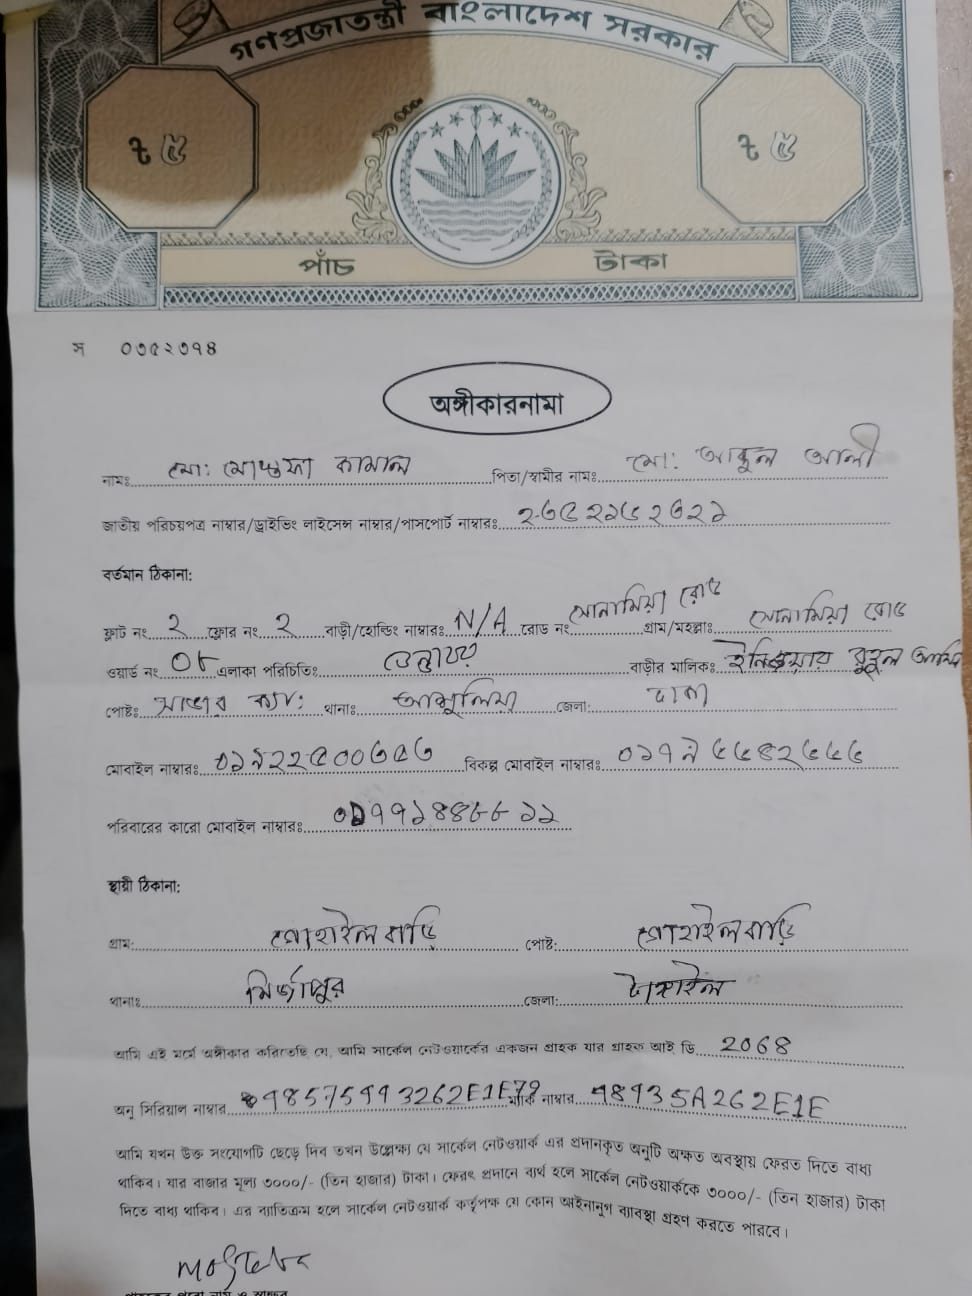 গণপ্রজাতন্ত্রী বাংলাদেশ সরকার
৳ ৫ ৳ ৫
পাঁচ টাকা
স ০৩৫২৩৭৪
অঙ্গীকারনামা
নামঃ মো: মোস্তফা কামাল পিতা/স্বামীর নাম: মো: আবুল আলী
জাতীয় পরিচয়পত্র নাম্বার/ড্রাইভিং লাইসেন্স নাম্বার/পাসপোর্ট নাম্বারঃ
বর্তমান ঠিকানা:
ফ্লাট নং ২ ফ্লোর নং ২ বাড়ী/হোল্ডিং নাম্বারঃ N/A রোড নং সোনামিয়া রোড গ্রাম/মহল্লাঃ সোনামিয়া রোড
ওয়ার্ড নং এলাকা পরিচিতিঃ বাড়ীর মালিকঃ রুহুল আমিন
পোষ্টঃ সাভার ক্যা: থানাঃ আশুলিয়া জেলা: ঢাকা
মোবাইল নাম্বারঃ বিকল্প মোবাইল নাম্বারঃ
পরিবারের কারো মোবাইল নাম্বারঃ
স্থায়ী ঠিকানা:
গ্রাম: গোহাইলবাড়ি পোষ্ট: গোহাইলবাড়ি
থানাঃ মির্জাপুর জেলা: টাঙ্গাইল
আমি এই মর্মে অঙ্গীকার করিতেছি যে, আমি সার্কেল নেটওয়ার্কের একজন গ্রাহক যার গ্রাহক আই ডি 2068
অনু সিরিয়াল নাম্বার 48575993262E1E79 মার্ক নাম্বার 48935A262E1E
আমি যখন উক্ত সংযোগটি ছেড়ে দিব তখন উল্লেক্ষ্য যে সার্কেল নেটওয়ার্ক এর প্রদানকৃত অনুটি অক্ষত অবস্থায় ফেরত দিতে বাধ্য
থাকিব। যার বাজার মূল্য ৩০০০/- (তিন হাজার) টাকা। ফেরৎ প্রদানে ব্যর্থ হলে সার্কেল নেটওয়ার্ককে ৩০০০/- (তিন হাজার) টাকা
দিতে বাধ্য থাকিব। এর ব্যতিক্রম হলে সার্কেল নেটওয়ার্ক কর্তৃপক্ষ যে কোন আইনানুগ ব্যাবস্থা গ্রহণ করতে পারবে।